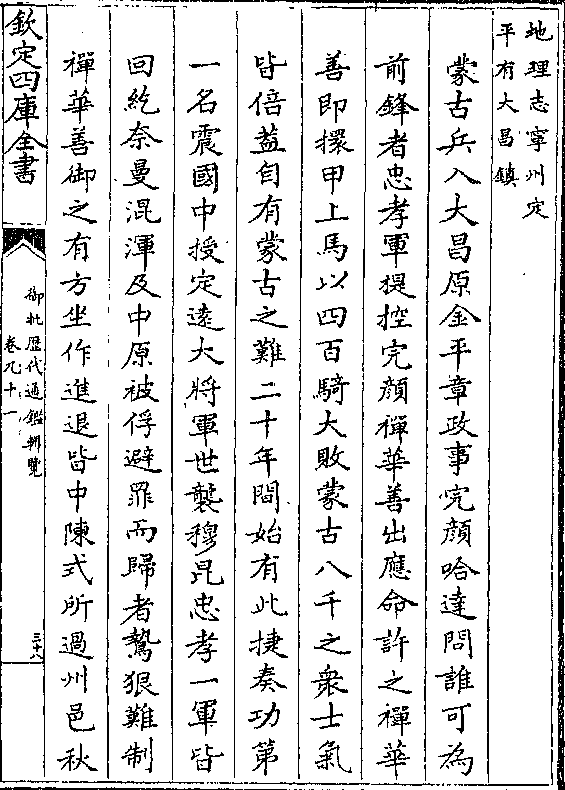 地理志寧州定
平有大昌鎮
蒙古兵入大昌原金平章政事完顔哈達問誰可為
前鋒者忠孝軍提控完顔禪華善出應命許之禪華
善即擐甲上馬以四百騎大敗蒙古八千之衆士氣
皆倍蓋自有蒙古之難二十年間始有此捷奏功第
一名震國中授定遠大將軍世襲穆昆忠孝一軍皆
回紇奈曼混渾及中原被俘避罪而歸者鷙狠難制
禪華善御之有方坐作進退皆中陳式所過州邑秋
欽定四庫全書
御批歴代通鑑輯覽
卷九十一
三十八